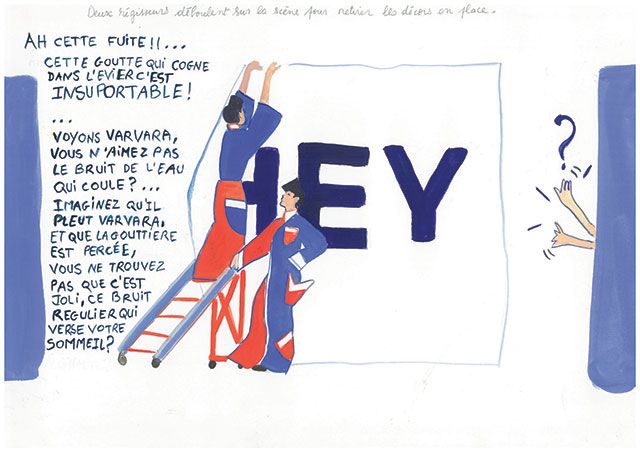 Deux régisseurs déboulent sur la scène pour retirer les décors en place.
AH CETTE FUITE!!...
CETTE GOUTTE QUI COGNE
DANS L'EVIER C'EST
INSUPORTABLE!
...
VOYONS VARVARA,
VOUS N'AIMEZ PAS
LE BRUIT DE L'EAU
QUI COULE?...
IMAGINEZ QU'IL
PLEUT VARVARA,
ET QUE LA GOUTTIÈRE
EST PERCÉE,
VOUS NE TROUVEZ
PAS QUE C'EST
JOLI, CE BRUIT
REGULIER QUI
VERSE VOTRE
SOMMEIL?
HEY
?